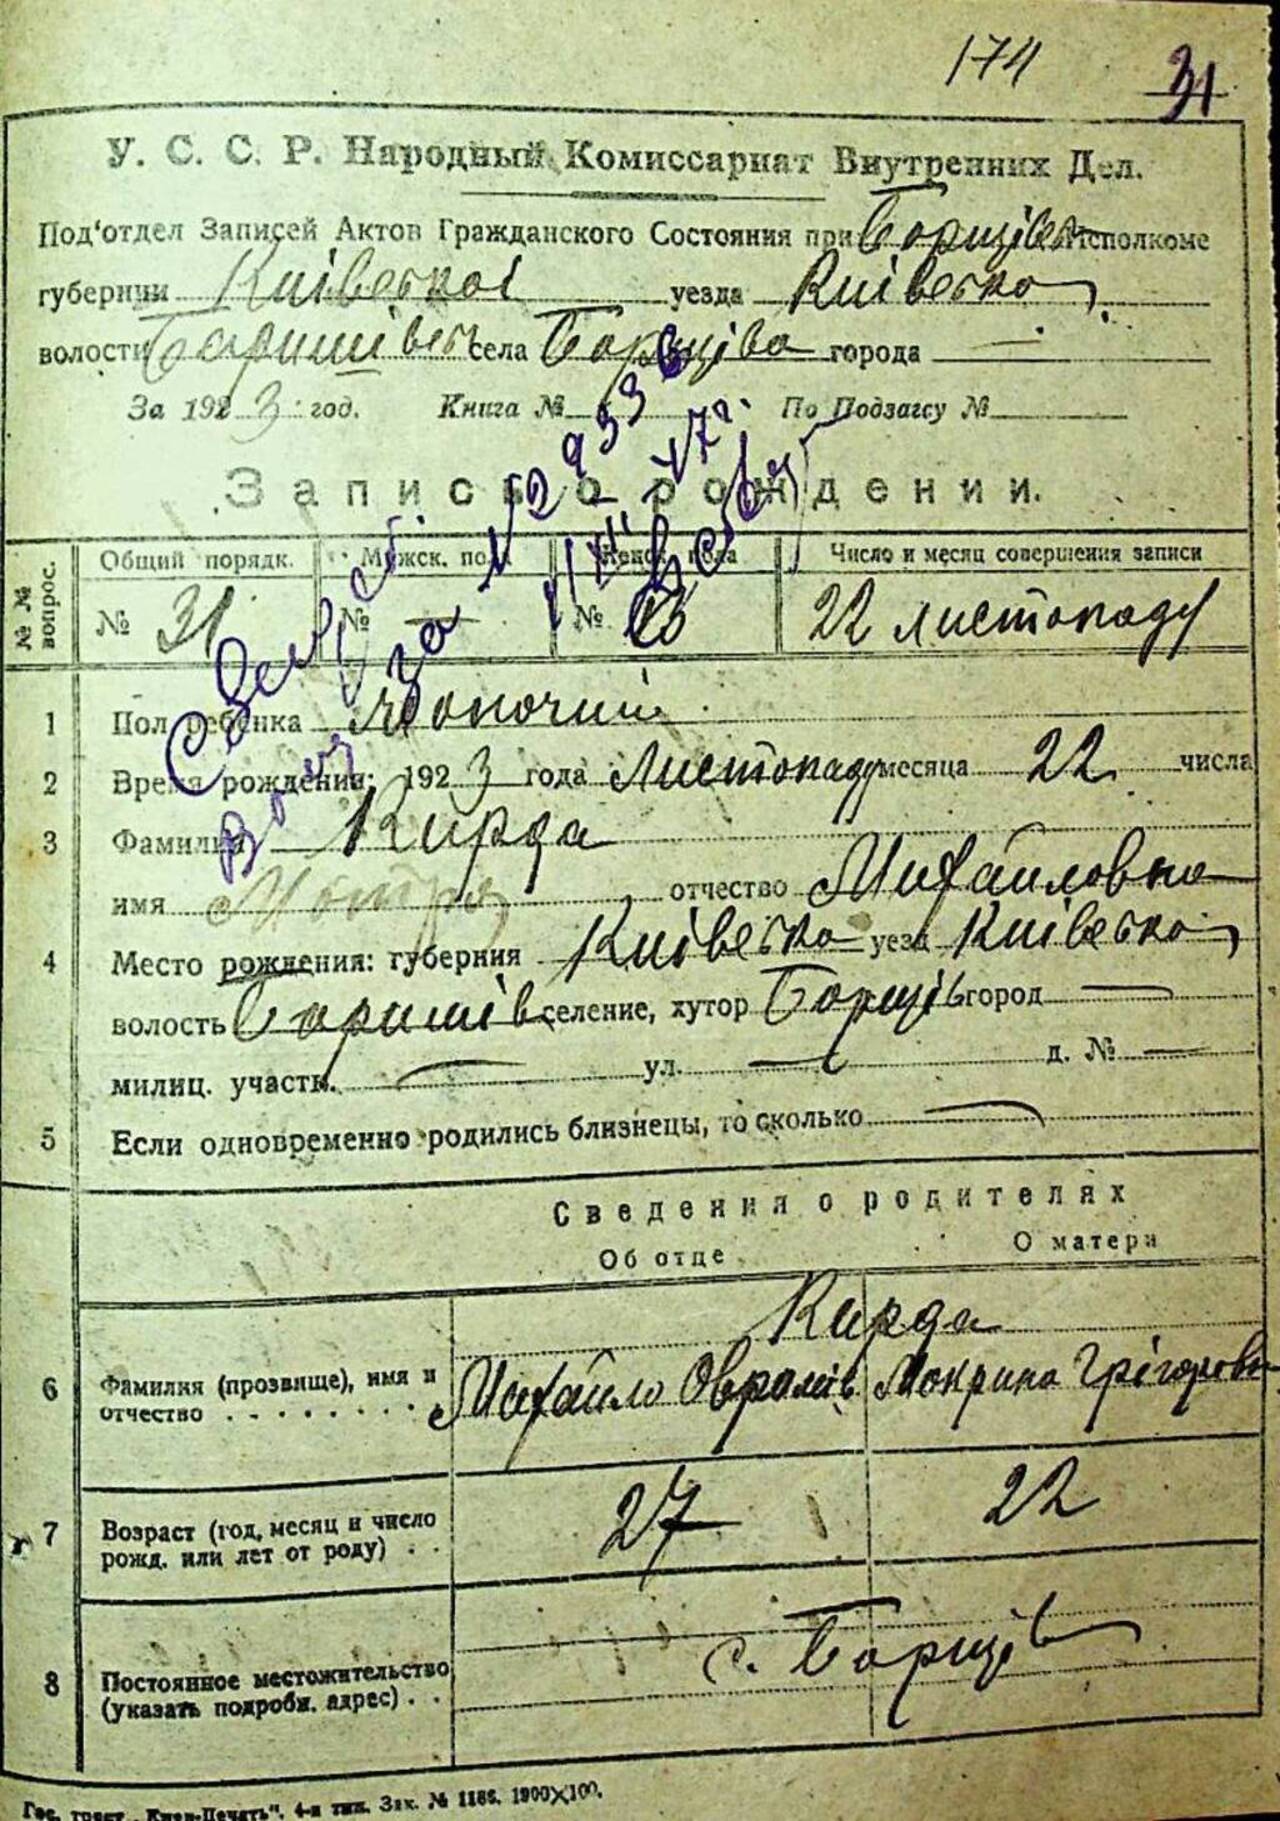 174 31
У. С. С. Р. Народный Комиссариат Внутренних Дел.
Под'отдел Записей Актов Гражданского Состояния при Борщівск Исполкоме
губернии Київської уезда Київсько
волости Баришівськ села Борщіва города —
За 1923 год. Книга № По Подзагсу №
Запись о рождении.
№№ вопрос. Общий порядк. Мужск. пол. Женск. пола Число и месяц совершения записи
№ 31 № — № 13 22 листопаду
1 Пол ребенка Жіночий
2 Время рождения: 1923 года Листопаду месяца 22 числа
3 Фамилия Кирда
имя Мотря отчество Михайловна
4 Место рождения: губерния Київсько уезд Київсько
волость Баришів селение, хутор Борщів город —
милиц. участк. — ул. — д. № —
5 Если одновременно родились близнецы, то сколько —
Сведения о родителях
Об отце О матери
Кирда
6 Фамилия (прозвище), имя и Михайло Оврамів Мокрина Грігоровн
отчество
7 Возраст (год, месяц и число 27 22
рожд. или лет от роду)
8 Постоянное местожительство с. Борщів
(указать подробн. адрес)
Гос. трест „Киев-Печать“. 4-я тип. Зак. № 1186. 1900×100.